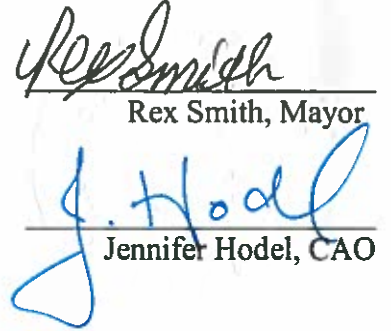 Rex Smith
Rex Smith, Mayor
J. Hodel
Jennifer Hodel, CAO